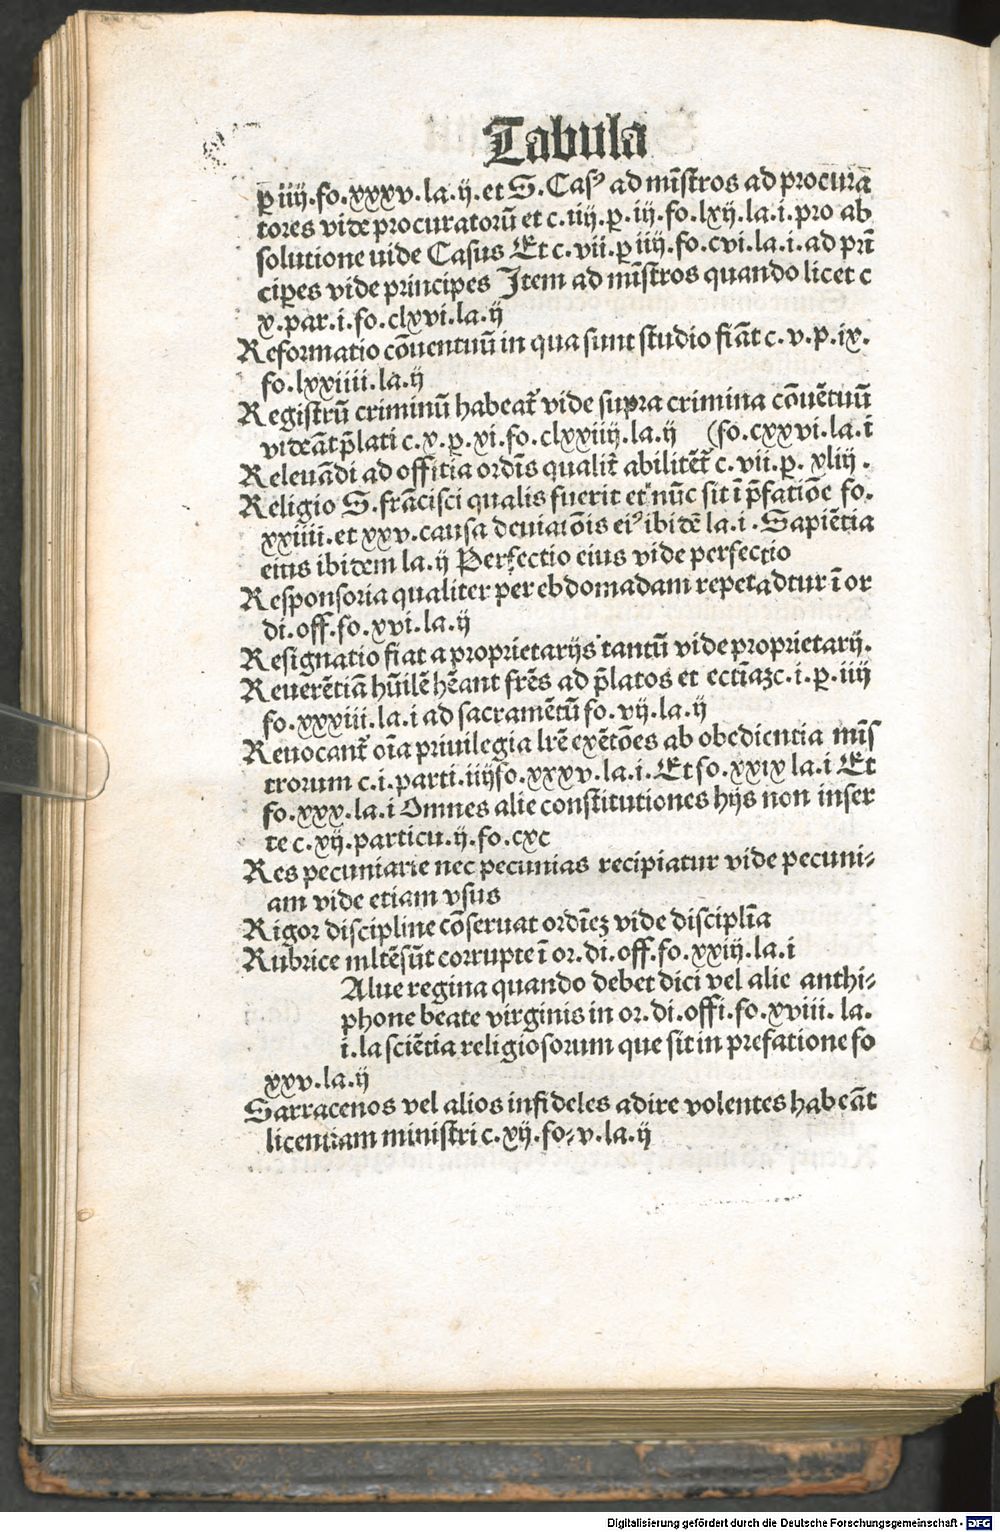 Tabula
ꝑ iiij.fo.xxxv.la.ij.et S.Casꝰ ad mĩstros ad procura
tores vide procuratorũ et c.iij.ꝑ.iij.fo.lxij.la.i.pro ab
solutione uide Casus Et c.vii.ꝑ iiij.fo.cvi.la.i.ad prĩ
ciꝑes vide principes Item ad mĩstros quando licet c
x.par.i.fo.clxvi.la.ij
Reformatio cõuentuũ in qua sunt studio fiãt c.v.p.ix.
fo.lxxiiii.la.ij
Registrũ criminũ habeat᷑ vide supra crimina cõuẽtuũ
videãt p̃lati c.x.ꝑ.xi.fo.clxxiiij.la.ij (fo.cxxvi.la.i
Releuãdi ad offitia ordĩs qualit᷑ abilitẽt᷑ c.vii.ꝑ. xliij.
Religio S.frãcisci qualis fuerit et nũc sit ĩ p̃fatiõe fo.
xxiiii.et xxv.causa deuiatõis eiꝰ ibidẽ la.i.Sapiẽtia
eius ibidem la.ij Perfectio eius vide perfectio
Responsoria qualiter per ebdomadam repetadtur ĩ or
di.off.fo.xvi.la.ij
Resignatio fiat a proprietarijs tantũ vide proprietarij.
Reuerẽtiã hũilẽ hẽant frẽs ad p̃latos et ectĩaꝫ c.i.ꝑ.iiij
fo.xxxiii.la.i ad sacramẽtũ fo.vij.la.ij
Reuocant᷑ oĩa priuilegia lr̃e exẽtões ab obedientia mĩs
trorum c.i.parti.iiij fo.xxxv.la.i.Et fo.xxix la.i Et
fo.xxx.la.i Omnes alie constitutiones hijs non inser
te c.xij.particu.ij.fo.cxc
Res pecuniarie nec pecunias recipiatur vide pecuni⸗
am vide etiam vsus
Rigor discipline cõseruat ordĩeꝫ vide disciplĩa
Rubrice mltẽ sũt corrupte ĩ or.di.off.fo.xxiij.la.i
Alue regina quando debet dici vel alie anthi⸗
phone beate virginis in or.di.offi.fo.xviii. la.
i.la sciẽtia religiosorum que sit in prefatione fo
xxv.la.ij
Sarracenos vel alios infideles adire volentes habeãt
licentiam ministri c.xij.fo⸗v.la.ij
Digitalisierung gefördert durch die Deutsche Forschungsgemeinschaft - DFG